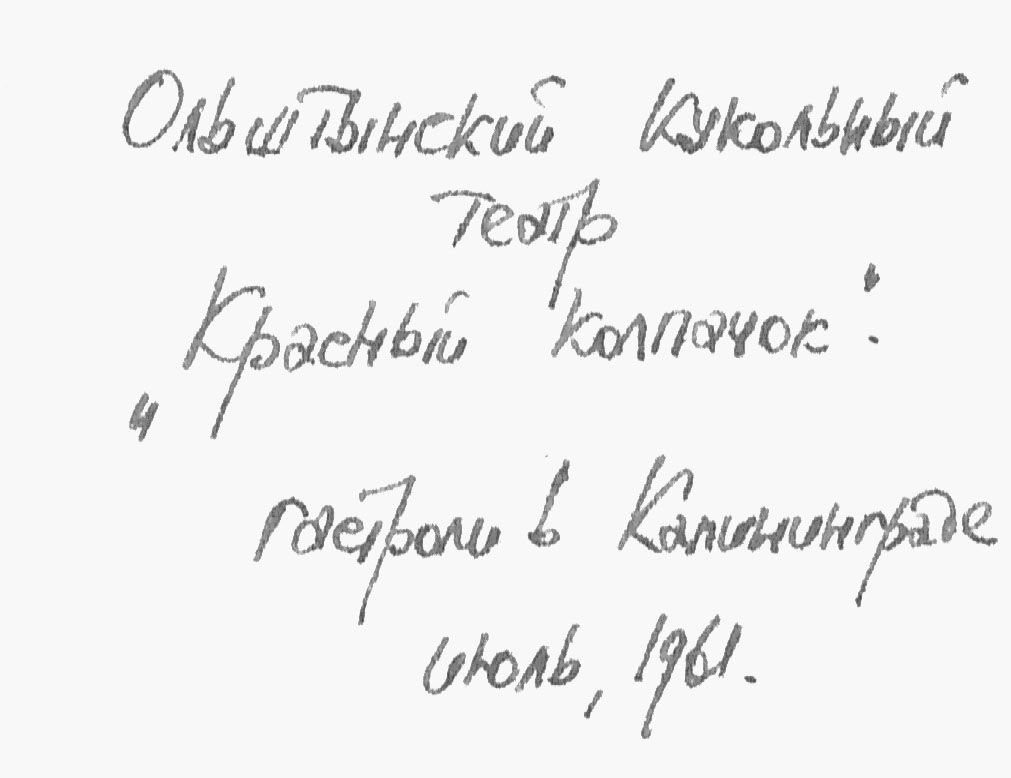 Ольштынский кукольный
театр
„Красный колпачок“.
гастроли в Калининграде
июль, 1961.